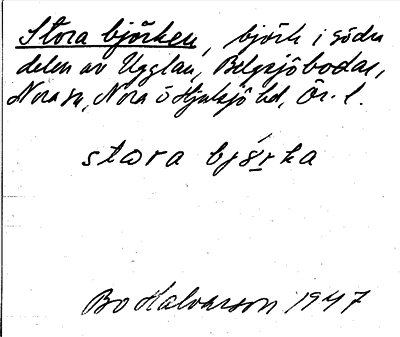 Stora björken, björk i södra
delen av Ugglan, Bergsjöbodar,
Nora sn, Nora o Hjulsjö hd, Ör. l.
stωra bjö́rka
Bo Halvarson 1947